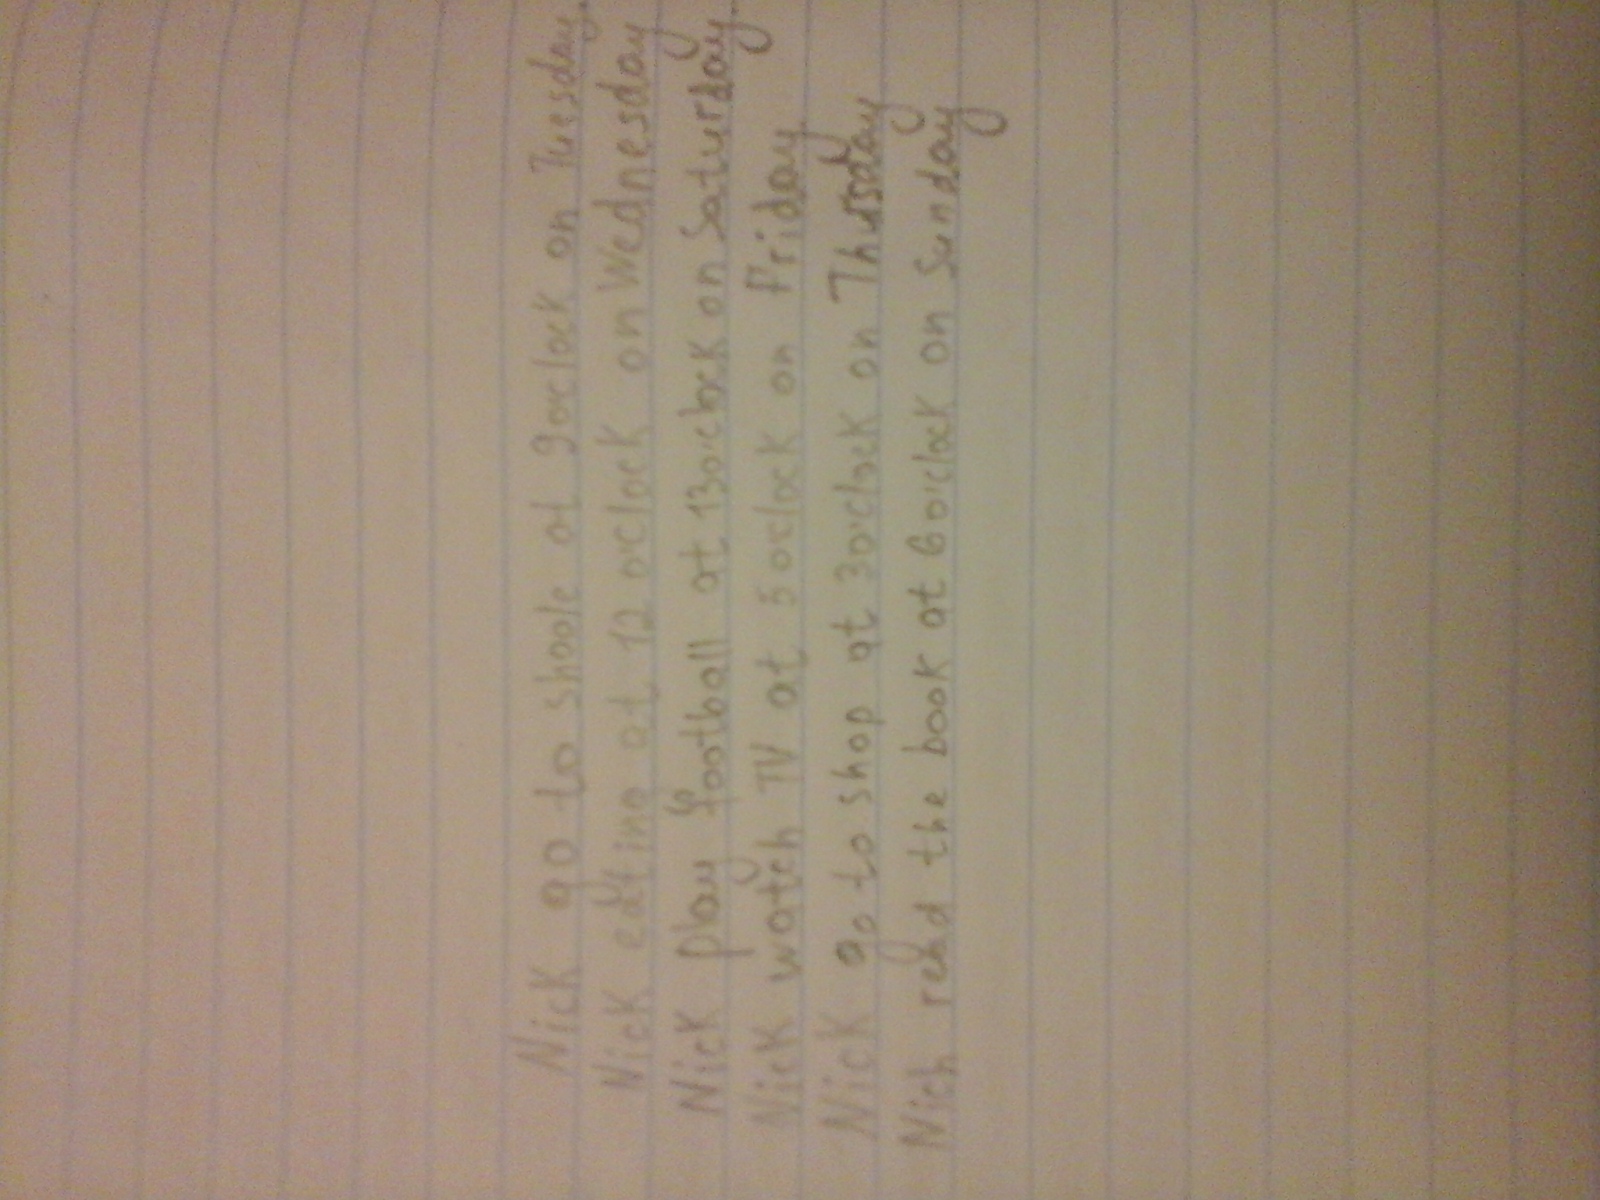 Nick go to shoole at 9 o'clock on Tuesday.
Nick eating at 12 o'clock on Wednesday
Nick play football at 13 o'clock on Saturday.
Nick watch TV at 5 o'clock on Friday
Nick go to shop at 3 o'clock on Thursday
Nich read the book at 6 o'clock on Sunday